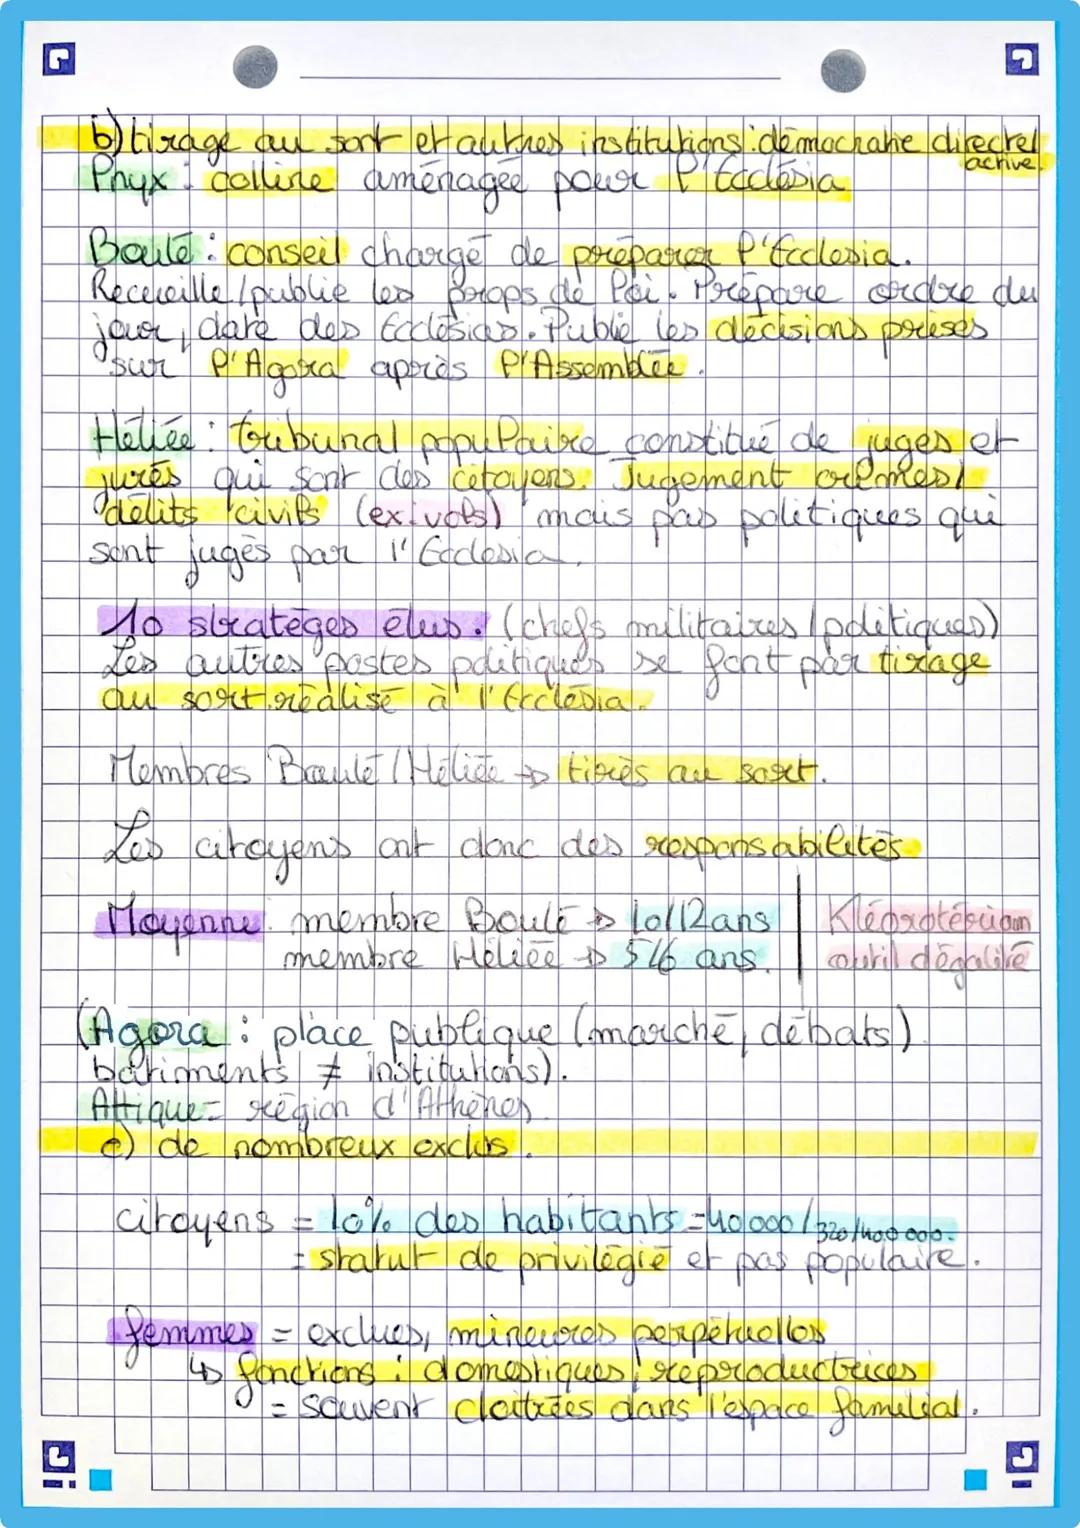 b) tirage au sort et autres institutions : démocratie directe/
active.
Pnyx : colline aménagée pour l'Ecclésia
Boulé : conseil chargé de préparer l'Ecclesia.
Recueille/publie les props de loi. Prépare ordre du
jour, date des Ecclésias. Publie les décisions prises
sur l'Agora après l'Assemblée.
Héliée : tribunal populaire constitué de juges et
jurés qui sont des citoyens. Jugement crimes/
délits civils (ex: vols) mais pas politiques qui
sont jugés par l'Ecclesia.
10 stratèges élus. (chefs militaires/politiques)
Les autres postes politiques se font par tirage
au sort réalisé à l'Ecclésia.
Membres Boulé/Héliée → tirés au sort.
Les citoyens ont donc des responsabilités
Moyenne: membre Boulé → 10/12 ans
membre Héliée → 5/6 ans.
Klérotérion
outil d'égalité
(Agora : place publique (marché, débats)
bâtiments ≠ institutions).
Attique = région d'Athènes.
c) de nombreux exclus.
citoyens = 10% des habitants = 40 000 / 320/400 000.
= statut de privilégié et pas populaire.
femmes = exclues, mineures perpétuelles
↳ fonctions : domestiques, reproductrices
= souvent cloîtrées dans l'espace familial.